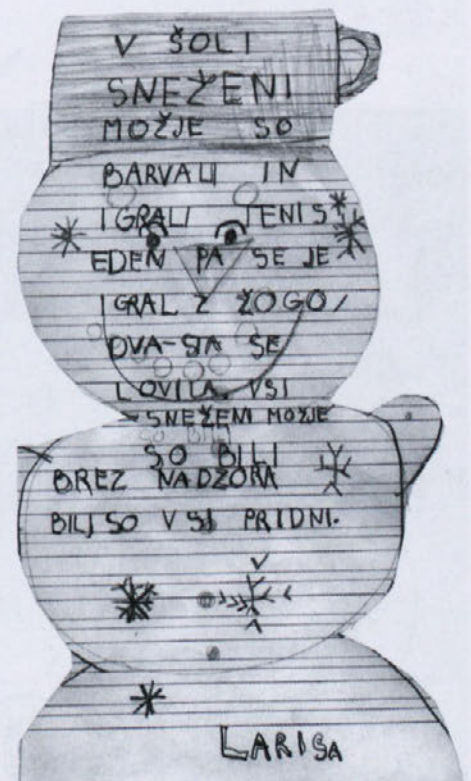 V ŠOLI
SNEŽENI
MOŽJE SO
BARVALI IN
IGRALI TENIS,
EDEN PA SE JE
IGRAL Z ŽOGO,
DVA-STA SE
LOVILA. VSI
SNEŽENI MOŽJE
SO BILI
BREZ NADZORA
BILI SO VSI PRIDNI.
LARISA